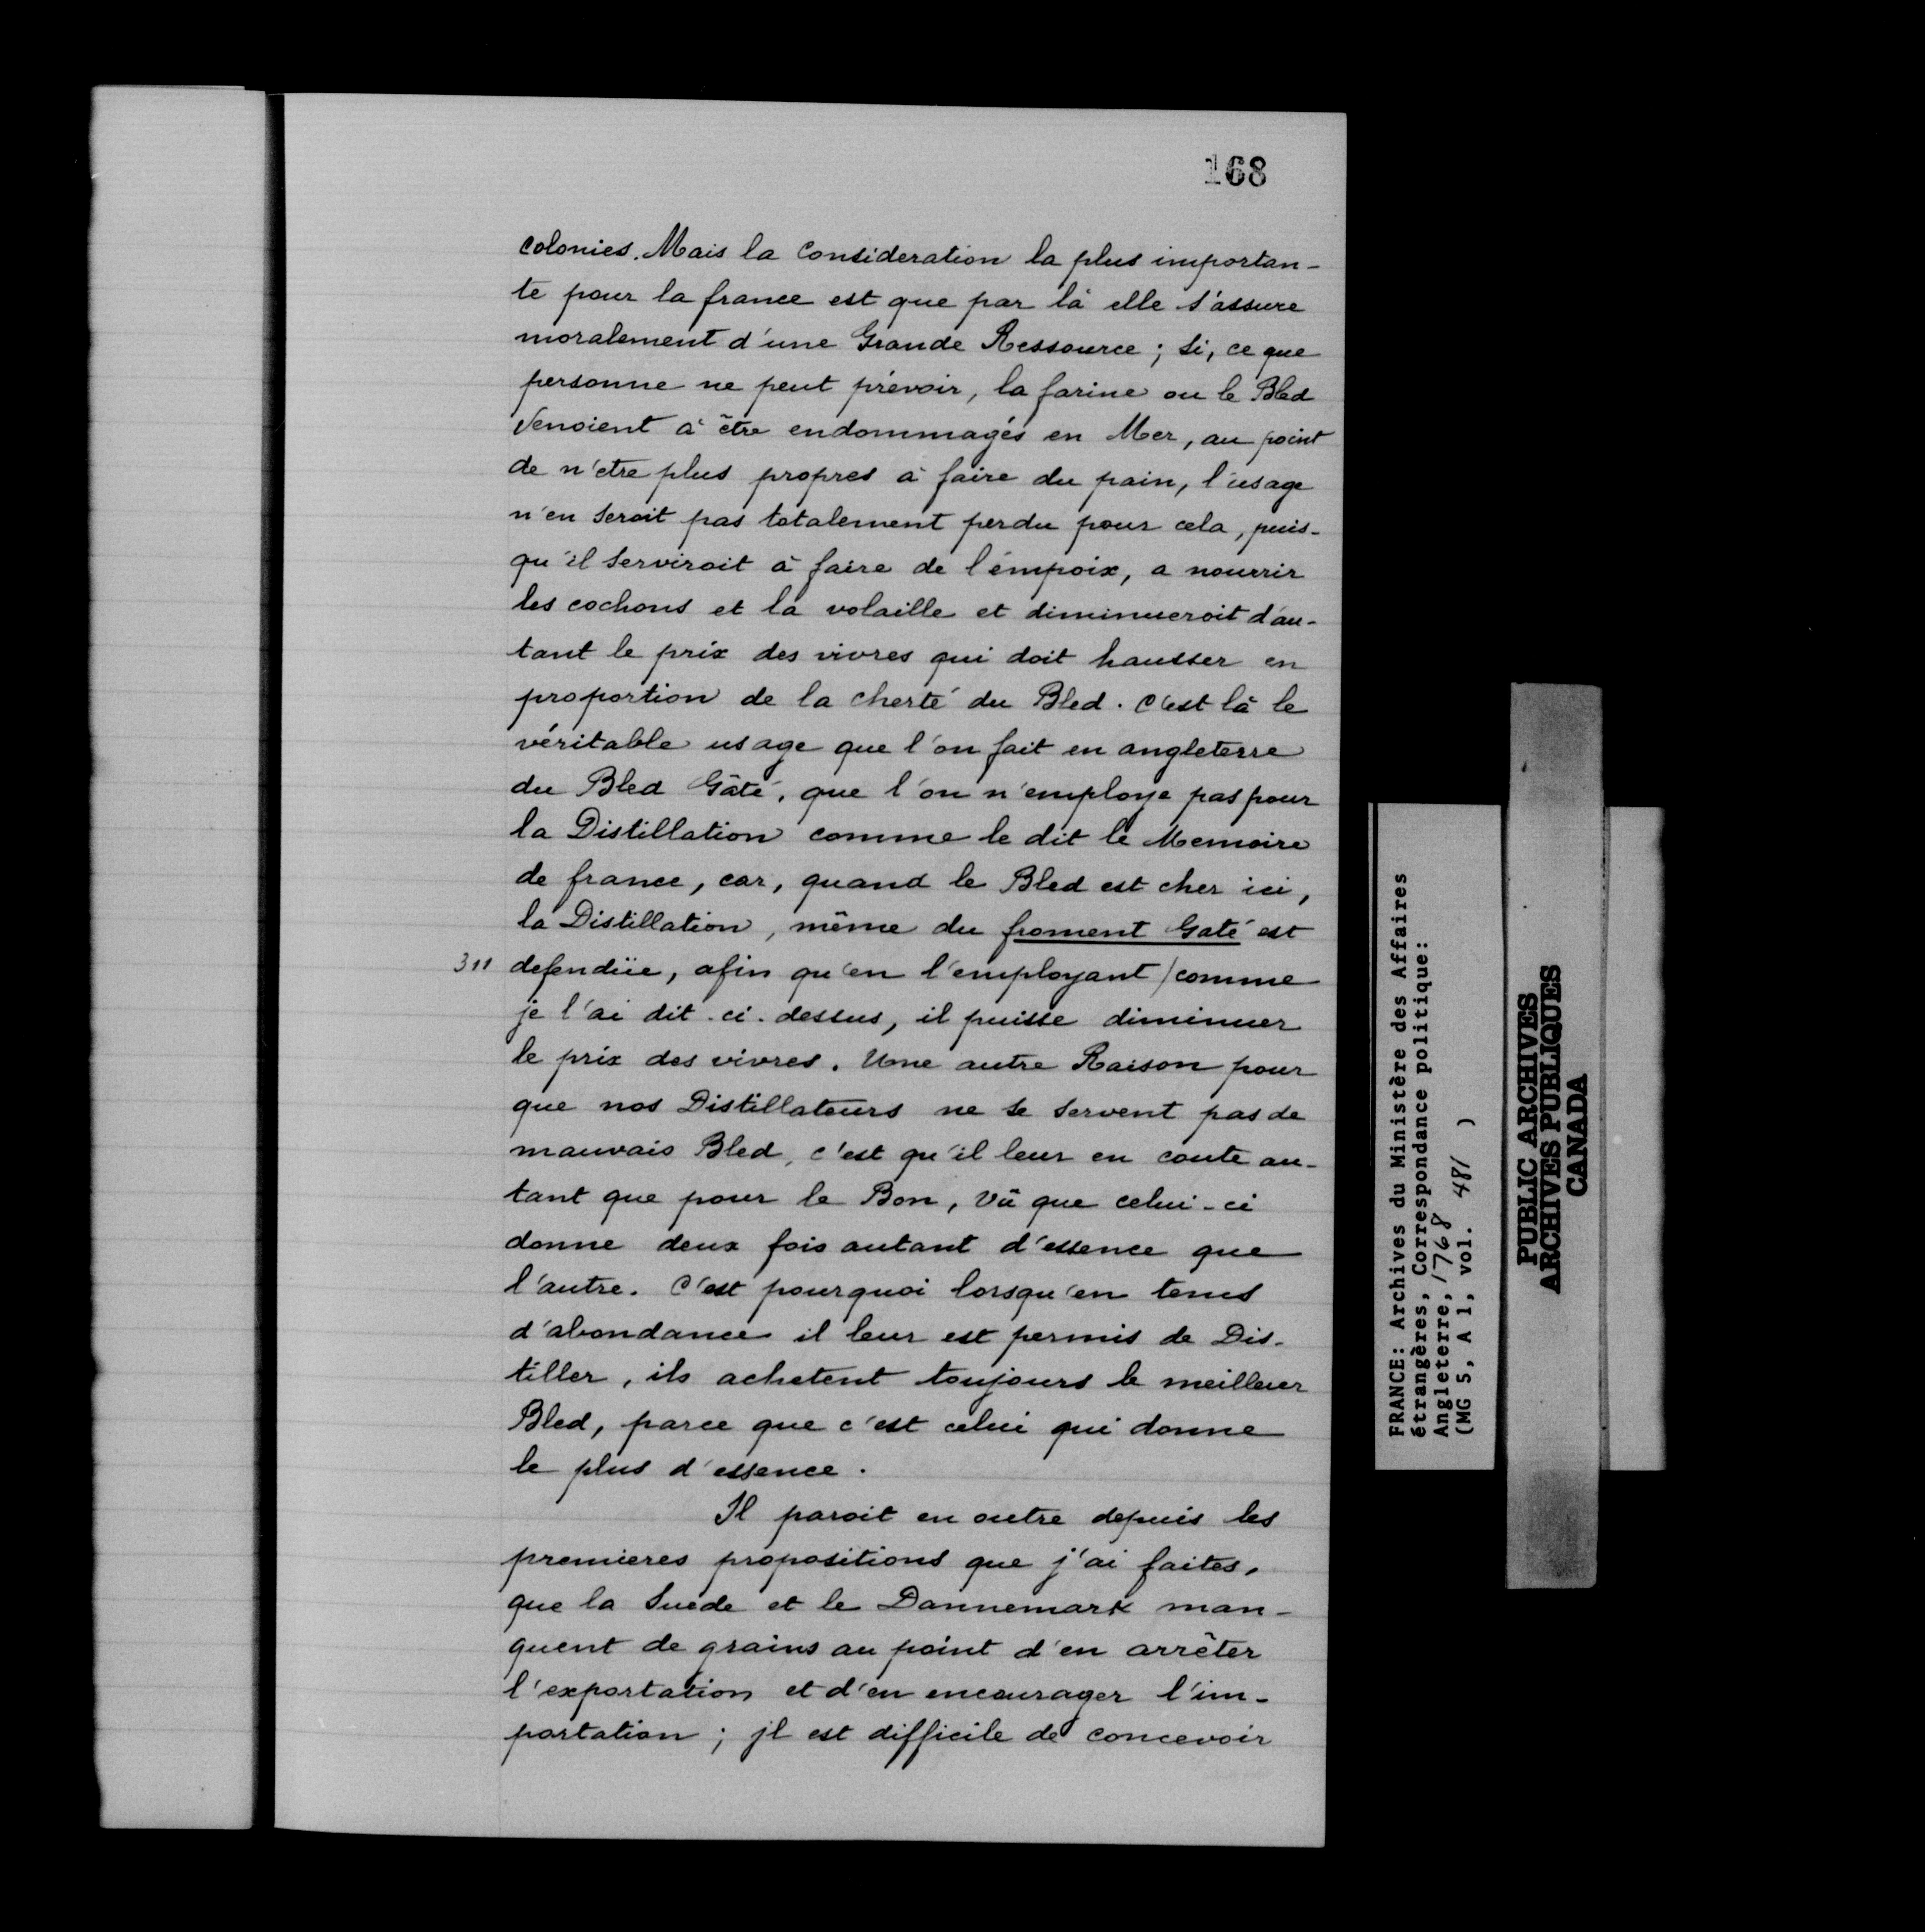 168
colonies. Mais la Consideration la plus importan-
te pour la france est que par là elle s'assure
moralement d'une Grande Ressource ; si, ce que
personne ne peut prévoir, la farine ou le Bled
Venoient à être endommagés en Mer, au point
de n'etre plus propres à faire du pain, l'usage
n'en seroit pas totalement perdu pour cela, puis-
qu'il serviroit à faire de l'émpoix, a nourrir
les cochons et la volaille et diminueroit d'au-
tant le prix des vivres qui doit hausser en
proportion de la cherté du Bled. C'est là le
véritable usage que l'on fait en angleterre
du Bled Gâté, que l'on n'employe pas pour
la Distillation comme le dit le Memoire
de france, car, quand le Bled est cher ici,
la Distillation, même du froment Gaté est
311 defendüe, afin qu'en l'employant / comme
je l'ai dit-ci-dessus, il puisse diminuer
le prix des vivres. Une autre Raison pour
que nos Distillateurs ne se servent pas de
mauvais Bled, c'est qu'il leur en coute au-
tant que pour le Bon, Vû que celui-ci
donne deux fois autant d'essence que
l'autre. C'est pourquoi lorsqu'en tems
d'abondance il leur est permis de Dis-
tiller, ils achetent toujours le meilleur
Bled, parce que c'est celui qui donne
le plus d'essence.
Il paroit en outre depuis les
premieres propositions que j'ai faites,
que la Suede et le Dannemark man-
quent de grains au point d'en arrêter
l'exportation et d'en encourager l'im-
portation ; jl est difficile de concevoir
FRANCE: Archives du Ministère des Affaires
étrangères, Correspondance politique:
Angleterre, 1768
(MG 5, A 1, vol. 481 )
PUBLIC ARCHIVES
ARCHIVES PUBLIQUES
CANADA